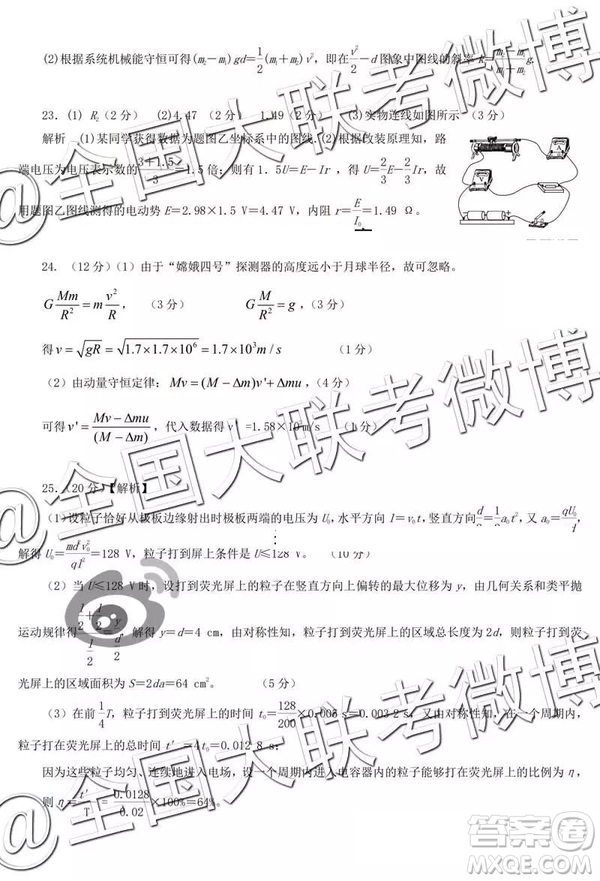 (2)根据系统机械能守恒可得(m₂−m₁)gd=1/2(m₁+m₂)v²，即在v²/2−d图象中图线的斜率k=
23. (1) R₂(2分) (2)4.47 (2分) 1.49(2分) (3)实物连线如图所示 (3分)
解析 (1)某同学获得数据为题图乙坐标系中的图线.(2)根据改装原理知，路
端电压为电压表示数的(3+1.5)/3=1.5倍；则有1.5U=E−Ir，得U=2/3E−2/3Ir，故
用题图乙图线测得的电动势E=2.98×1.5 V=4.47 V，内阻r=E/I₀=1.49 Ω.
24. (12分)(1)由于“嫦娥四号”探测器的高度远小于月球半径，故可忽略。
G Mm/R²=m v²/R， (3分) G M/R²=g，(3分)
得v=√gR=√1.7×1.7×10⁶=1.7×10³m/s (1分)
(2)由动量守恒定律：Mv=(M−Δm)v'+Δmu，(4分)
可得v'=(Mv−Δmu)/(M−Δm)，代入数据得v' =1.58×10 m/s (1分)
25. (20分)【解析】
(1)设粒子恰好从极板边缘射出时极板两端的电压为U₀，水平方向l=v₀t，竖直方向d/2=1/2a₀t²，又a₀=qU₀/md
解得U₀=md²v₀²/ql²=128 V，粒子打到屏上条件是U≤128 V. (10分)
(2)当U≤128 V时，设打到荧光屏上的粒子在竖直方向上偏转的最大位移为y，由几何关系和类平抛
运动规律得 解得y=d=4 cm，由对称性知，粒子打到荧光屏上的区域总长度为2d，则粒子打到荧
光屏上的区域面积为S=2da=64 cm². (5分)
(3)在前1/4T，粒子打到荧光屏上的时间t₀=128/200×0.005 s=0.003 2 s，又由对称性知，在一个周期内，
粒子打在荧光屏上的总时间t′=4t₀=0.012 8 s；
因为这些粒子均匀、连续地进入电场，设一个周期内进入电容器内的粒子能够打在荧光屏上的比例为η，
则η=t′/T=0.0128/0.02×100%=64%.
@全国大联考微博
@全国大联考微博
@全国大联考微博
答案圈
MXQE.COM